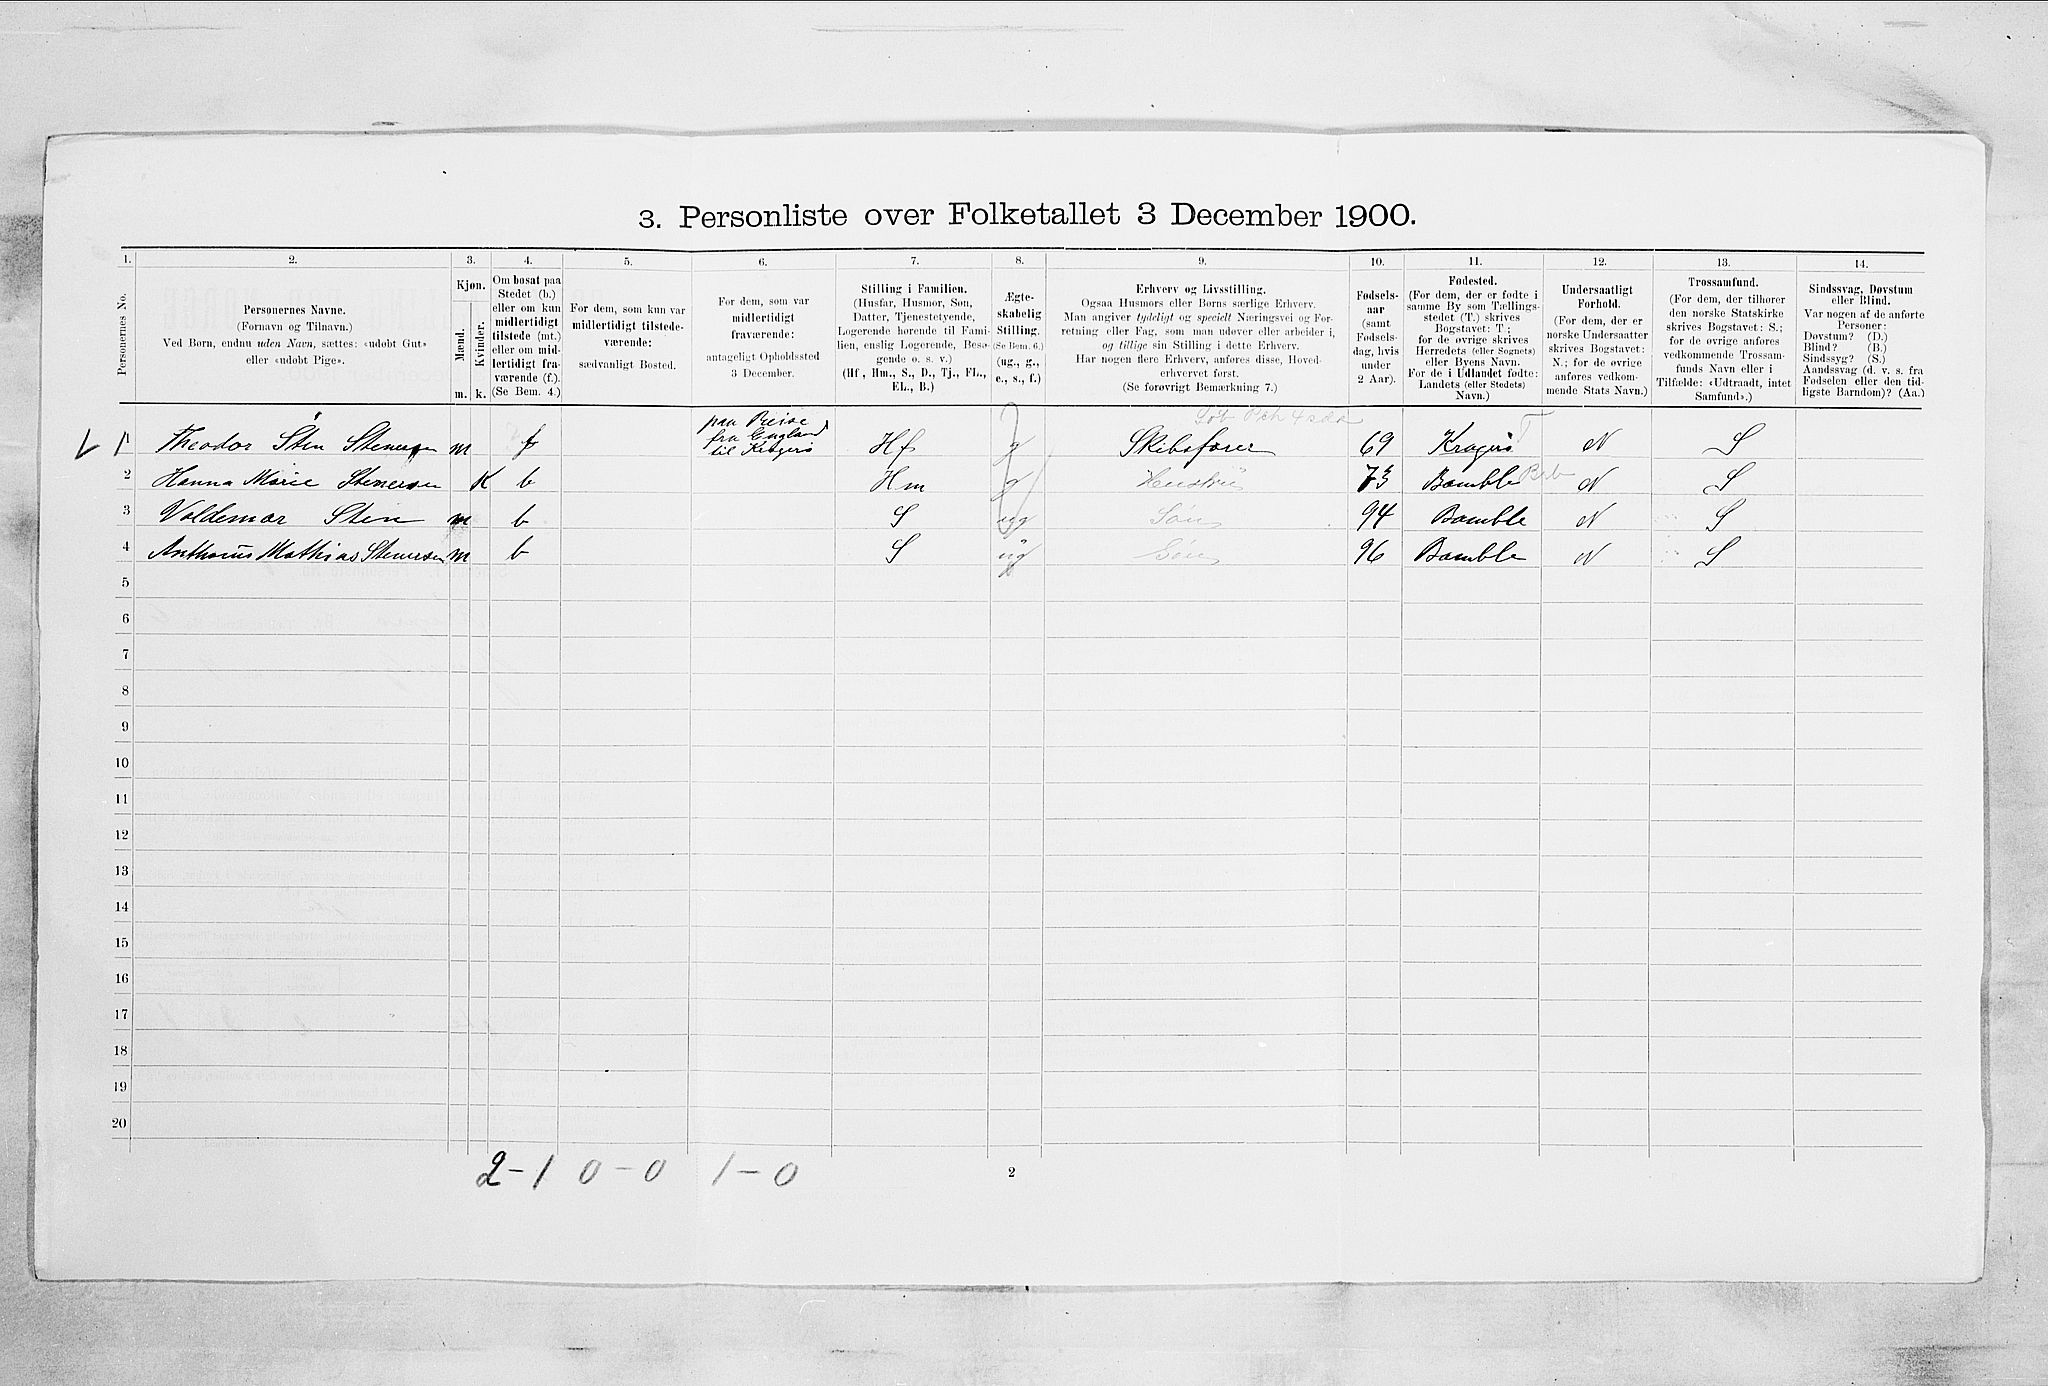 3. Personliste over Folketallet 3 December 1900.
1. 2. 3. 4. 5. 6. 7. 8. 9. 10. 11. 12. 13. 14.
Personernes No.
Personernes Navne.
(Fornavn og Tilnavn.)
Ved Børn, endnu uden Navn, sættes: «udøbt Gut»
eller «udøbt Pige».
Kjøn.
Mænd.
Kvinder.
m. k.
Om bosat paa
Stedet (b.)
eller om kun
midlertidigt
tilstede (mt.)
eller om mid-
lertidigt fra-
værende (f.).
(Se Bem. 4.)
For dem, som kun var
midlertidigt tilstede-
værende:
sædvanligt Bosted.
For dem, som var
midlertidigt
fraværende:
antageligt Opholdssted
3 December.
Stilling i Familien.
(Husfar, Husmor, Søn,
Datter, Tjenestetyende,
Logerende hørende til Fami-
lien, enslig Logerende, Besø-
gende o. s. v.)
(Hf., Hm., S., D., Tj., FL.,
EL., B.)
Ægte-
skabelig
Stilling.
(Se Bem. 6.)
(ug., g.,
e., s., f.)
Erhverv og Livsstilling.
Ogsaa Husmors eller Børns særlige Erhverv.
Man angiver tydeligt og specielt Næringsvei og For-
retning eller Fag, som man udøver eller arbeider i,
og tillige sin Stilling i dette Erhverv.
Har nogen flere Erhverv, anføres disse, Hoved-
erhvervet først.
(Se forøvrigt Bemærkning 7.)
Fødsels-
aar
(samt
Fødsels-
dag, hvis
under
2 Aar).
Fødested.
(For dem, der er fødte i
samme By som Tællings-
stedet (T.) skrives
Bogstavet: T.;
for de øvrige skrives
Herredets (eller Sognets)
eller Byens Navn.
For de i Udlandet fødte:
Landets (eller Stedets)
Navn.)
Undersaatligt
Forhold.
(For dem, der er
norske Undersaatter
skrives Bogstavet:
N.; for de øvrige
anføres vedkom-
mende Stats Navn.)
Trossamfund.
(For dem, der tilhører
den norske Statskirke
skrives Bogstavet: S.;
for de øvrige anføres
vedkommende Trossam-
funds Navn eller i
Tilfælde: «Udtraadt, intet
Samfund».)
Sindssvag, Døvstum
eller Blind.
Var nogen af de anførte
Personer:
Døvstum? (D.)
Blind? (B.)
Sindssyg? (S.)
Aandssvag (d. v. s. fra
Fødselen eller den tid-
ligste Barndom)? (Aa.)
1 Theodor Sten Stenersen m f paa Reise
fra England
til Kragerø Hf g Skibsfører 69 Kragerø T N S
2 Hanna Marie Stenersen K b Hm g Hustru 73 Bamble N S
3 Valdemar Sten m b S ug Søn 94 Bamble N S
4 Anthonius Mathias Stenersen m b S ug Søn 96 Bamble N S
5
6
7
8
9
10
11
12
13
14
15
16
17
18
19
20
2-1 0-0 1-0
2